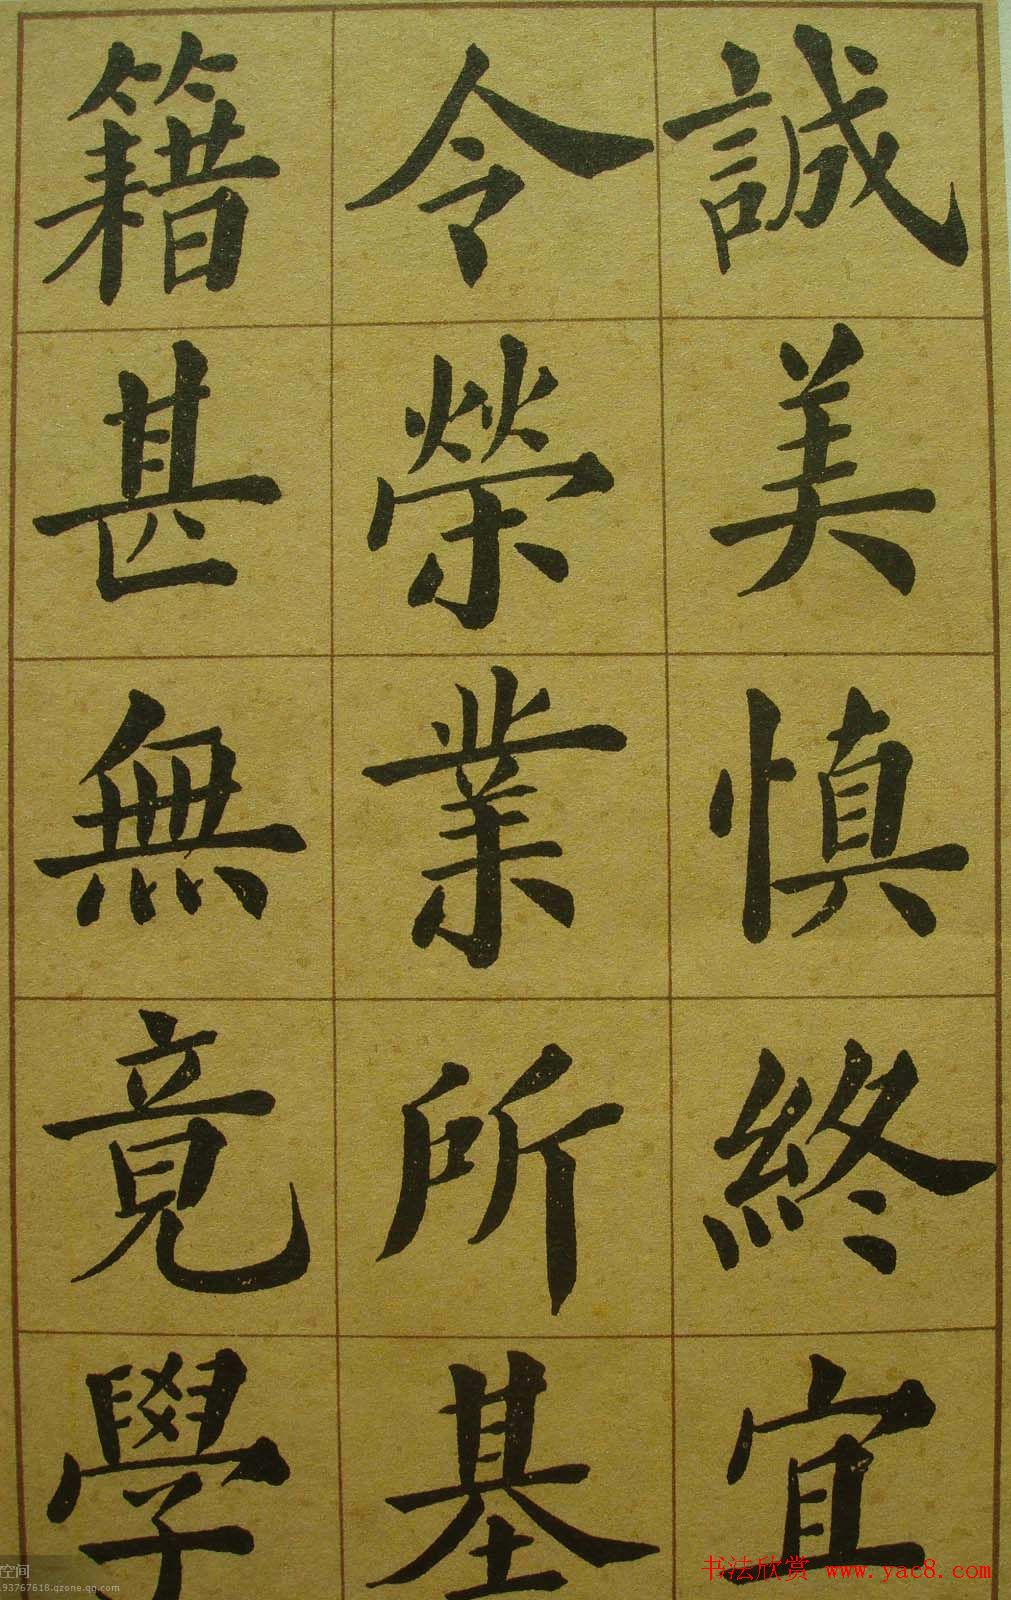 誠美慎終宜
令榮業所基
籍甚無竟學
书法欣赏 www.yac8.com
空间
93767618.qzone.qq.com